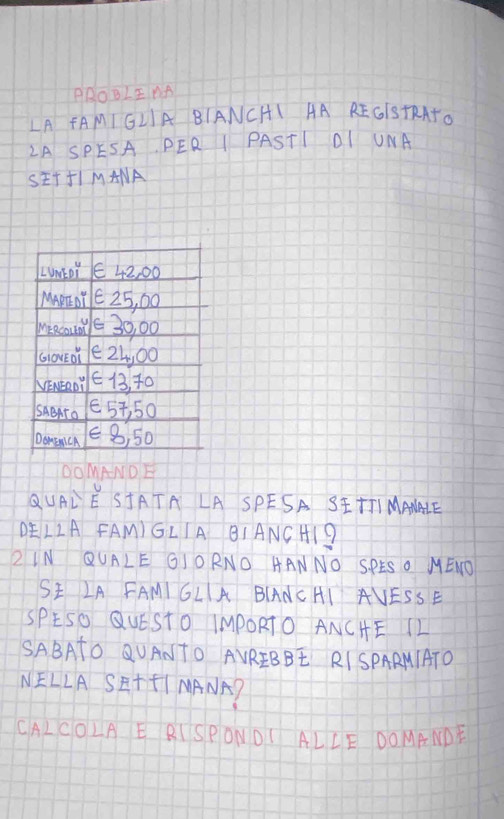 PROBLEMA
LA FAMIGLIA BIANCHI HA REGISTRATO
LA SPESA PER I PASTI DI UNA
SETTIMANA
LUNEDÌ € 42,00
MARTEDÌ € 25,00
MERCOLEDÌ € 30,00
GIOVEDÌ € 24,00
VENERDÌ € 13,70
SABATO € 57,50
DOMENICA € 8,50
DOMANDE
QUAL È STATA LA SPESA SETTIMANALE
DELLA FAMIGLIA BIANCHI?
2 IN QUALE GIORNO HANNO SPESO MENO
SE LA FAMIGLIA BIANCHI AVESSE
SPESO QUESTO IMPORTO ANCHE IL
SABATO QUANTO AVREBBE RISPARMIATO
NELLA SETTIMANA?
CALCOLA E RISPONDI ALLE DOMANDE